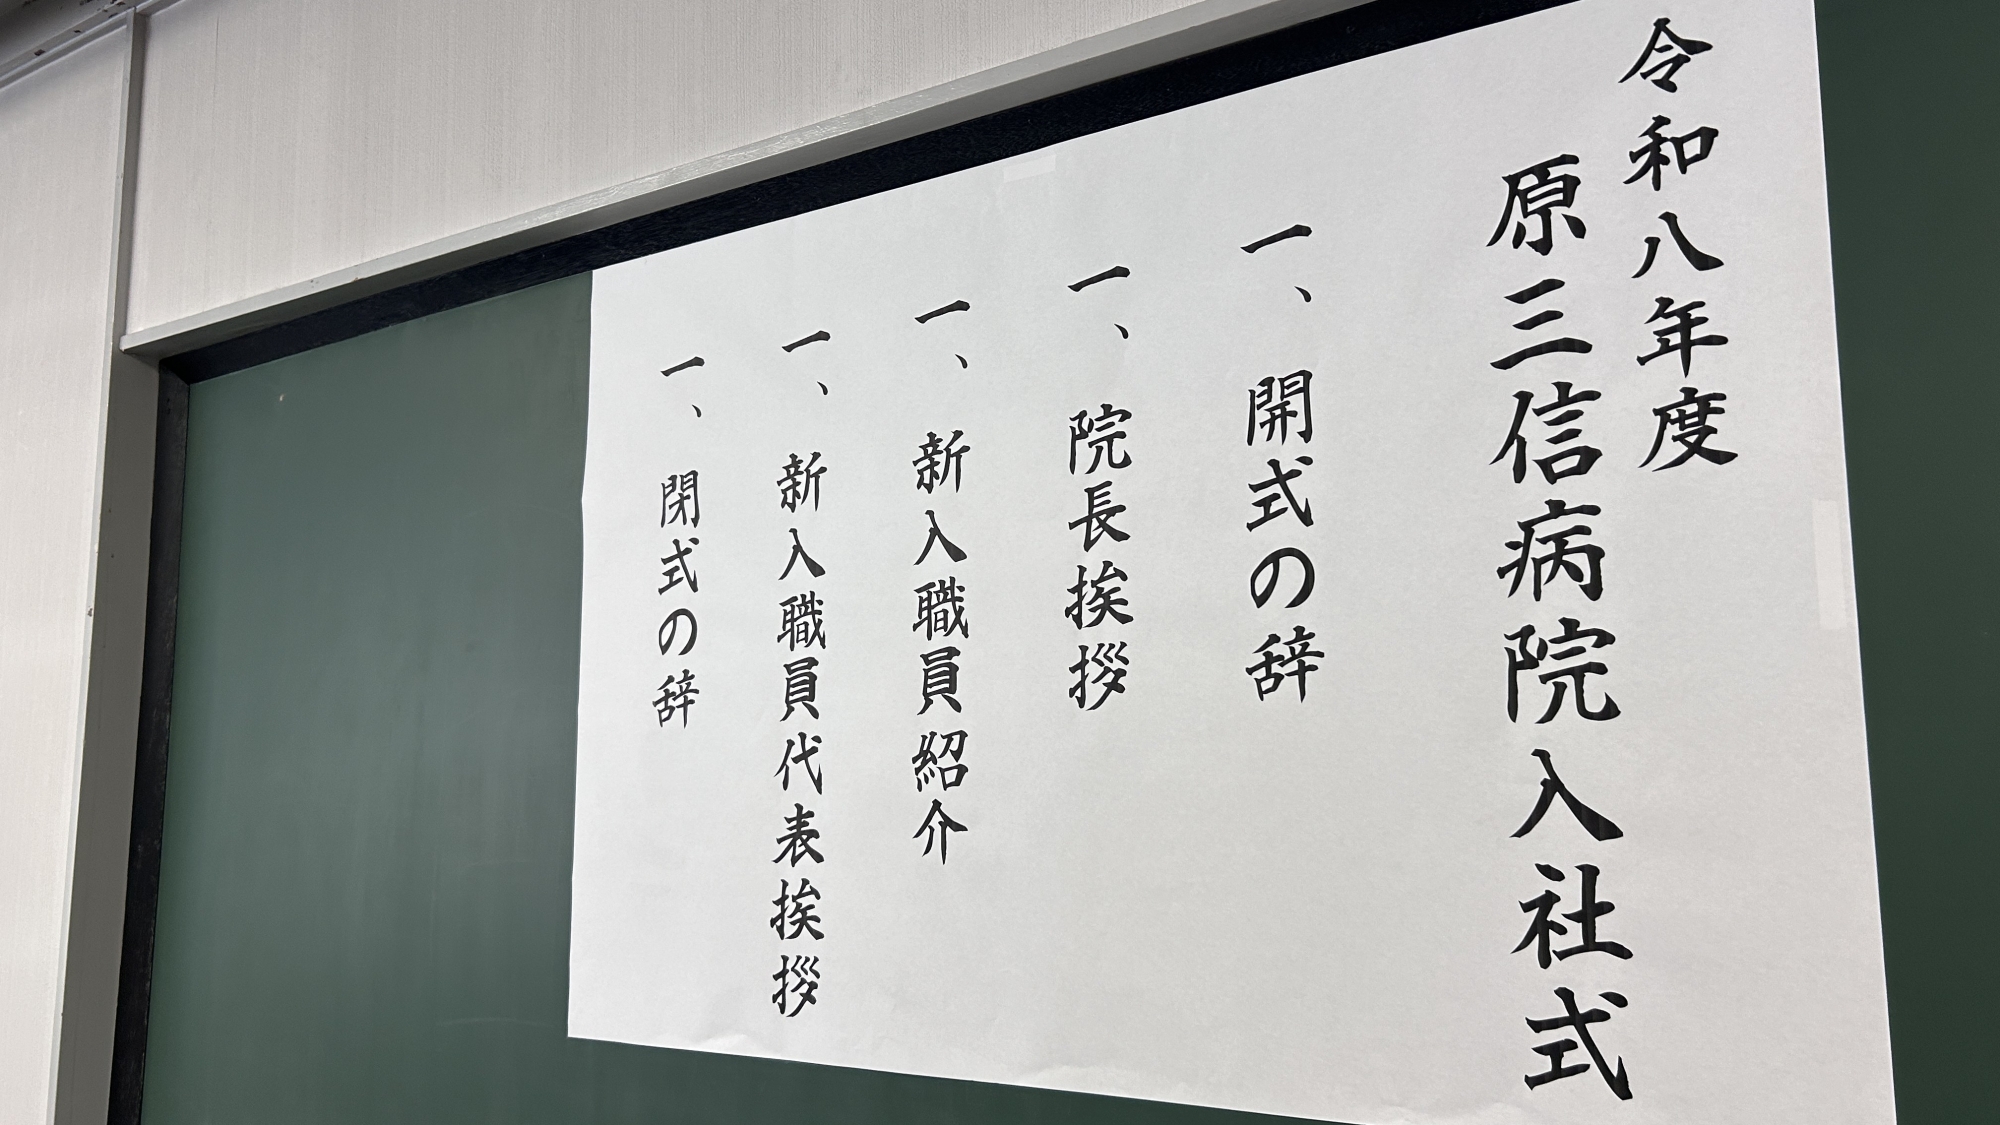 令和八年度
原三信病院入社式
一、開式の辞
一、院長挨拶
一、新入職員紹介
一、新入職員代表挨拶
一、閉式の辞